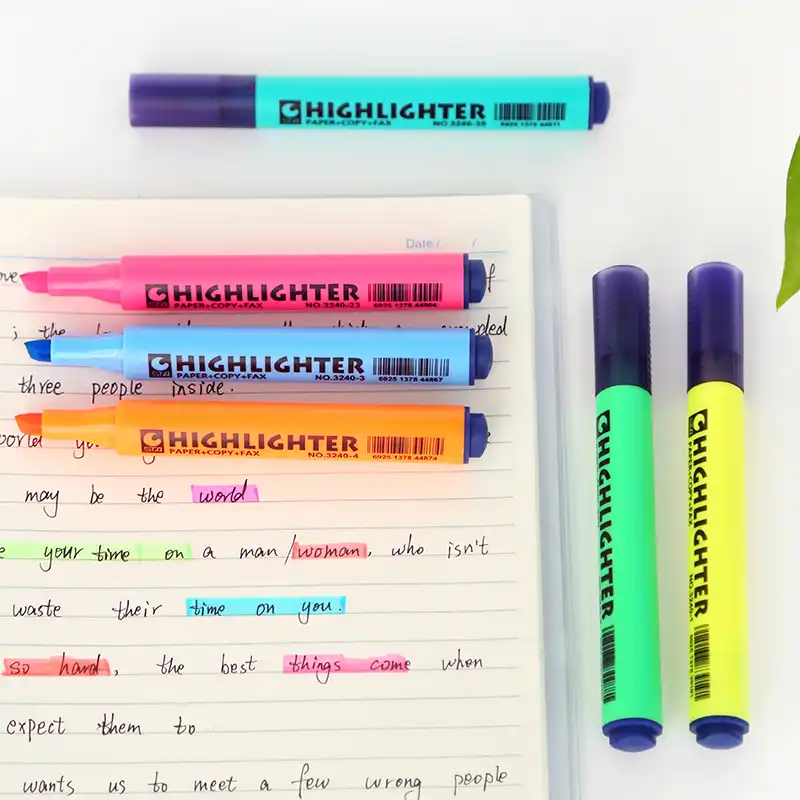 HIGHLIGHTER
PAPER+COPY+FAX NO.3240-35 6925 1378 44911
Date / /
HIGHLIGHTER
PAPER+COPY+FAX NO.3240-23 6925 1378 44904
; the
HIGHLIGHTER
PAPER+COPY+FAX NO.3240-3 6925 1378 44867
three people inside.
HIGHLIGHTER
PAPER+COPY+FAX NO.3240-4 6925 1378 44874
may be the world
your time on a man/woman, who isn't
waste their time on you.
so hard, the best things come when
expect them to
wants us to meet a few wrong people
HIGHLIGHTER
HIGHLIGHTER
PAPER+COPY+FAX